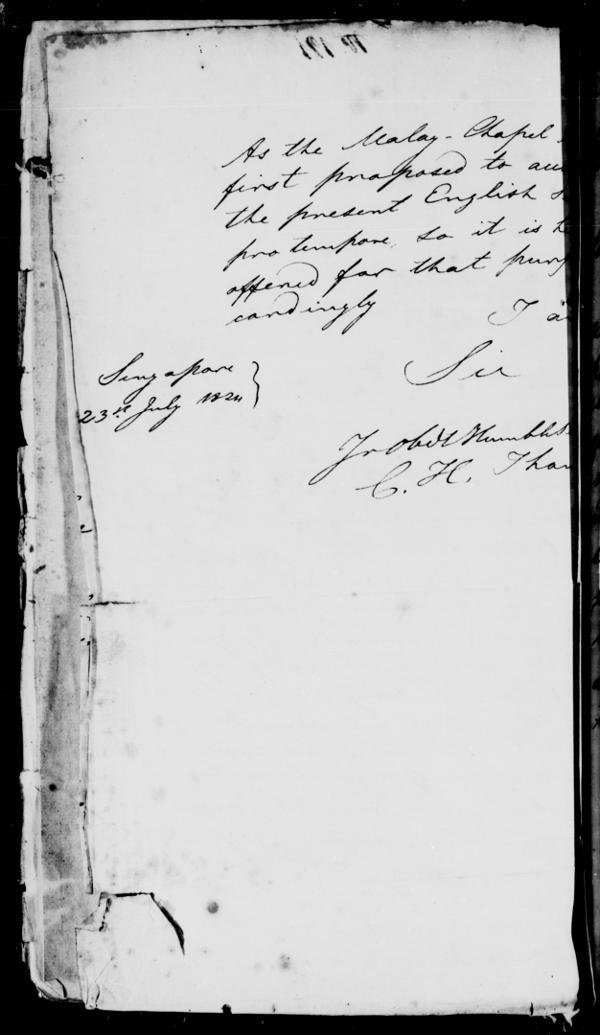 As the Malay-Chapel
first proposed to
the present English
pro tempore, so it is
offered for that purp
cordingly
I a
Sir
Singapore
23rd July 1824
Yr Obdt Humble
C. H. Tho